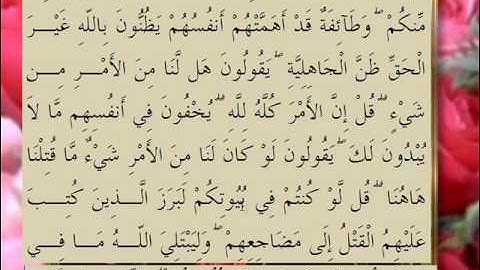 مِّنكُمْ ۖ وَطَآئِفَةٌ قَدْ أَهَمَّتْهُمْ أَنفُسُهُمْ يَظُنُّونَ بِاللّهِ غَيْرَ
الْحَقِّ ظَنَّ الْجَاهِلِيَّةِ ۖ يَقُولُونَ هَل لَّنَا مِنَ الْأَمْرِ مِن
شَيْءٍ ۗ قُلْ إِنَّ الْأَمْرَ كُلَّهُ لِلَّهِ ۗ يُخْفُونَ فِي أَنفُسِهِم مَّا لَا
يُبْدُونَ لَكَ ۖ يَقُولُونَ لَوْ كَانَ لَنَا مِنَ الْأَمْرِ شَيْءٌ مَّا قُتِلْنَا
هَاهُنَا ۗ قُل لَّوْ كُنتُمْ فِي بُيُوتِكُمْ لَبَرَزَ الَّذِينَ كُتِبَ
عَلَيْهِمُ الْقَتْلُ إِلَى مَضَاجِعِهِمْ ۖ وَلِيَبْتَلِيَ اللَّهُ مَا فِي